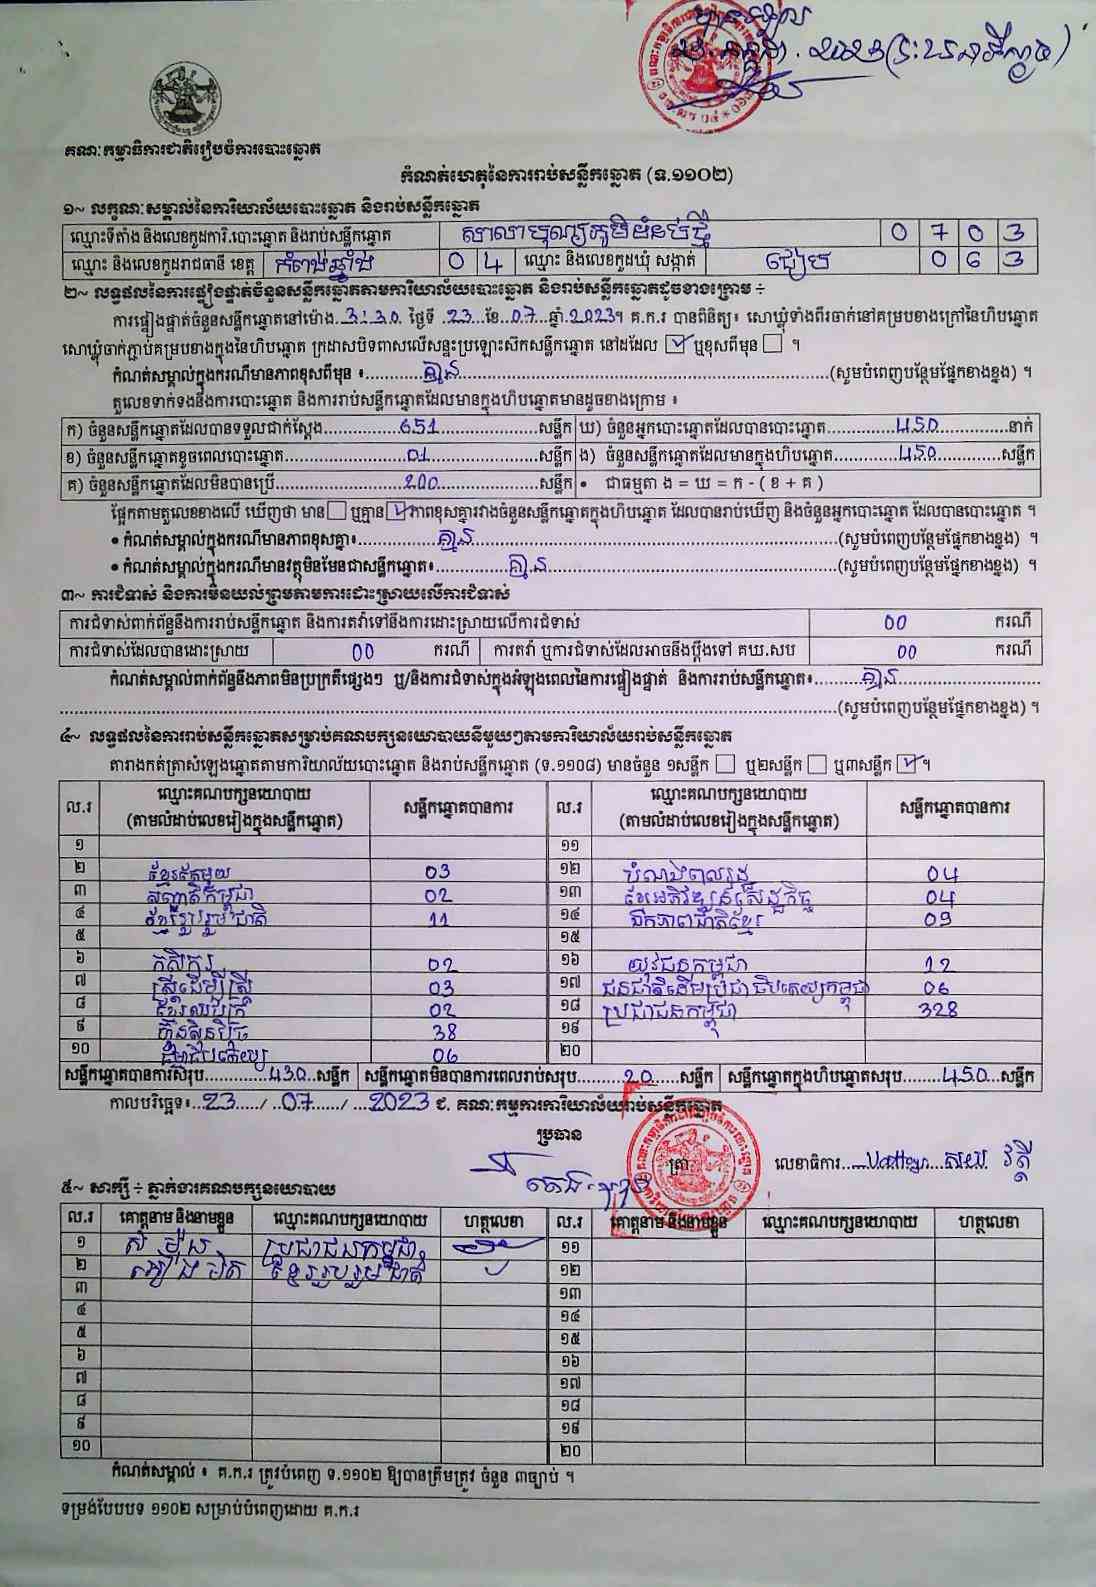 គណៈកម្មាធិការជាតិរៀបចំការបោះឆ្នោត
កំណត់ហេតុនៃការរាប់សន្លឹកឆ្នោត (ទ.១១០២)
១~ លក្ខណៈសម្គាល់នៃការិយាល័យបោះឆ្នោត និងរាប់សន្លឹកឆ្នោត
ឈ្មោះទីតាំង និងលេខកូដការិ.បោះឆ្នោត និងរាប់សន្លឹកឆ្នោត សាលាបុណ្យភូមិ 0 7 0 3
ឈ្មោះ និងលេខកូដរាជធានី ខេត្ត កំពង់ឆ្នាំង 0 4 ឈ្មោះ និងលេខកូដឃុំ សង្កាត់ ជៀប 0 6 3
២~ លទ្ធផលនៃការផ្ទៀងផ្ទាត់ចំនួនសន្លឹកឆ្នោតតាមការិយាល័យបោះឆ្នោត និងរាប់សន្លឹកឆ្នោតដូចខាងក្រោម ÷
ការផ្ទៀងផ្ទាត់ចំនួនសន្លឹកឆ្នោតនៅម៉ោង 3:30 ថ្ងៃទី 23 ខែ 07 ឆ្នាំ 2023។ គ.ក.រ បានពិនិត្យ៖ សោឃ្លុំទាំងពីរចាក់នៅគម្របខាងក្រៅនៃហិបឆ្នោត
សោឃ្លុំចាក់ភ្ជាប់គម្របខាងក្នុងនៃហិបឆ្នោត ក្រដាសបិទពាសលើសន្ទះប្រឡោះសិកសន្លឹកឆ្នោត នៅដដែល ☑ ឬខុសពីមុន ☐ ។
កំណត់សម្គាល់ក្នុងករណីមានភាពខុសពីមុន ៖ គ្មាន (សូមបំពេញបន្ថែមផ្នែកខាងខ្នង) ។
តួលេខទាក់ទងនឹងការបោះឆ្នោត និងការរាប់សន្លឹកឆ្នោតដែលមានក្នុងហិបឆ្នោតមានដូចខាងក្រោម ៖
ក) ចំនួនសន្លឹកឆ្នោតដែលបានទទួលជាក់ស្តែង 651 សន្លឹក ឃ) ចំនួនអ្នកបោះឆ្នោតដែលបានបោះឆ្នោត 450 នាក់
ខ) ចំនួនសន្លឹកឆ្នោតខូចពេលបោះឆ្នោត 01 សន្លឹក ង) ចំនួនសន្លឹកឆ្នោតដែលមានក្នុងហិបឆ្នោត 450 សន្លឹក
គ) ចំនួនសន្លឹកឆ្នោតដែលមិនបានប្រើ 200 សន្លឹក • ជាធម្មតា ង = ឃ = ក - ( ខ + គ )
ផ្អែកតាមតួលេខខាងលើ ឃើញថា មាន ☐ ឬគ្មាន ☑ ភាពខុសគ្នារវាងចំនួនសន្លឹកឆ្នោតក្នុងហិបឆ្នោត ដែលបានរាប់ឃើញ និងចំនួនអ្នកបោះឆ្នោត ដែលបានបោះឆ្នោត ។
• កំណត់សម្គាល់ក្នុងករណីមានភាពខុសគ្នា៖ គ្មាន (សូមបំពេញបន្ថែមផ្នែកខាងខ្នង) ។
• កំណត់សម្គាល់ក្នុងករណីមានវត្ថុមិនមែនជាសន្លឹកឆ្នោត៖ គ្មាន (សូមបំពេញបន្ថែមផ្នែកខាងខ្នង) ។
៣~ ការជំទាស់ និងការមិនយល់ព្រមតាមការដោះស្រាយលើការជំទាស់
ការជំទាស់ពាក់ព័ន្ធនឹងការរាប់សន្លឹកឆ្នោត និងការតវ៉ាទៅនឹងការដោះស្រាយលើការជំទាស់ 00 ករណី
ការជំទាស់ដែលបានដោះស្រាយ 00 ករណី ការតវ៉ា ឬការជំទាស់ដែលអាចនឹងប្តឹងទៅ គឃ.សប 00 ករណី
កំណត់សម្គាល់ពាក់ព័ន្ធនឹងភាពមិនប្រក្រតីផ្សេងៗ ឬ/និងការជំទាស់ក្នុងអំឡុងពេលនៃការផ្ទៀងផ្ទាត់ និងការរាប់សន្លឹកឆ្នោត៖ គ្មាន
(សូមបំពេញបន្ថែមផ្នែកខាងខ្នង) ។
៤~ លទ្ធផលនៃការរាប់សន្លឹកឆ្នោតសម្រាប់គណបក្សនយោបាយនីមួយៗតាមការិយាល័យរាប់សន្លឹកឆ្នោត
តារាងកត់ត្រាសំឡេងឆ្នោតតាមការិយាល័យបោះឆ្នោត និងរាប់សន្លឹកឆ្នោត (ទ.១១០៨) មានចំនួន ១សន្លឹក ☐ ឬ២សន្លឹក ☐ ឬ៣សន្លឹក ☑ ។
ល.រ ឈ្មោះគណបក្សនយោបាយ (តាមលំដាប់លេខរៀងក្នុងសន្លឹកឆ្នោត) សន្លឹកឆ្នោតបានការ ល.រ ឈ្មោះគណបក្សនយោបាយ (តាមលំដាប់លេខរៀងក្នុងសន្លឹកឆ្នោត) សន្លឹកឆ្នោតបានការ
១ ១១
២ ខ្មែរតែមួយ 03 ១២ បំណងពលរដ្ឋ 04
៣ សញ្ជាតិកម្ពុជា 02 ១៣ ខ្មែរអភិវឌ្ឍន៍សេដ្ឋកិច្ច 04
៤ ខ្មែររួបរួមជាតិ 11 ១៤ ឯកភាពជាតិខ្មែរ 09
៥ ១៥
៦ កសិករ 02 ១៦ យុវជនកម្ពុជា 12
៧ ស្ត្រីដើម្បីស្ត្រី 03 ១៧ ជនជាតិដើមប្រជាធិបតេយ្យកម្ពុជា 06
៨ ខ្មែរឈប់ក្រ 02 ១៨ ប្រជាជនកម្ពុជា 328
៩ ហ៊្វុនស៊ិនប៉ិច 38 ១៩
១០ ធម្មាធិបតេយ្យ 06 ២០
សន្លឹកឆ្នោតបានការសរុប 430 សន្លឹក សន្លឹកឆ្នោតមិនបានការពេលរាប់សរុប 20 សន្លឹក សន្លឹកឆ្នោតក្នុងហិបឆ្នោតសរុប 450 សន្លឹក
កាលបរិច្ឆេទ៖ 23 / 07 / 2023 ជ. គណៈកម្មការការិយាល័យរាប់សន្លឹកឆ្នោត
ប្រធាន
ត្រា លេខាធិការ
៥~ សាក្សី ÷ ភ្នាក់ងារគណបក្សនយោបាយ
ល.រ គោត្តនាម និងនាមខ្លួន ឈ្មោះគណបក្សនយោបាយ ហត្ថលេខា ល.រ គោត្តនាម និងនាមខ្លួន ឈ្មោះគណបក្សនយោបាយ ហត្ថលេខា
១ ប្រជាជនកម្ពុជា ១១
២ ខ្មែររួបរួមជាតិ ១២
៣ ១៣
៤ ១៤
៥ ១៥
៦ ១៦
៧ ១៧
៨ ១៨
៩ ១៩
១០ ២០
កំណត់សម្គាល់ ៖ គ.ក.រ ត្រូវបំពេញ ទ.១១០២ ឱ្យបានត្រឹមត្រូវ ចំនួន ៣ច្បាប់ ។
ទម្រង់បែបបទ ១១០២ សម្រាប់បំពេញដោយ គ.ក.រ